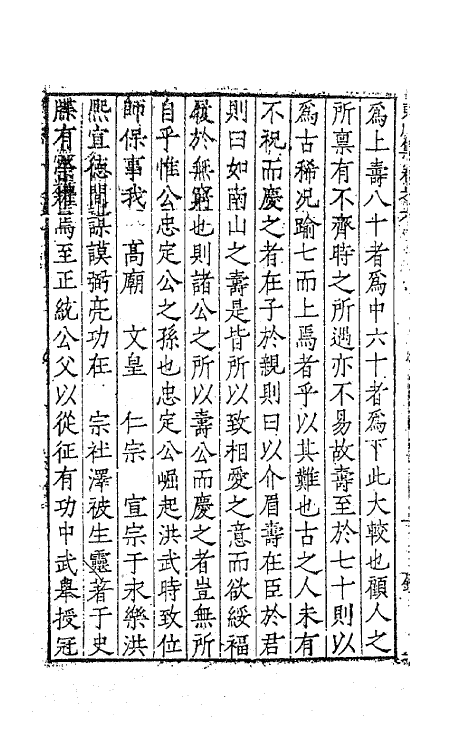 為上壽八十者為中六十者為下此大較也顧人之
所稟有不齊時之所遇亦不易故壽至於七十則以
為古稀况踰七而上焉者乎以其難也古之人未有
不祝而慶之者在子於親則曰以介眉壽在臣於君
則曰如南山之壽是皆所以致相愛之意而欲綏福
履於無窮也則諸公之所以壽公而慶之者豈無所
自乎惟公忠定公之孫也忠定公崛起洪武時致位
師保事我　高廟　文皇　仁宗　宣宗于永樂洪
熙宣徳間謀謨弼亮功在　宗社澤被生靈著于史
牒有焉至正統公父以從征有功中武舉授冠